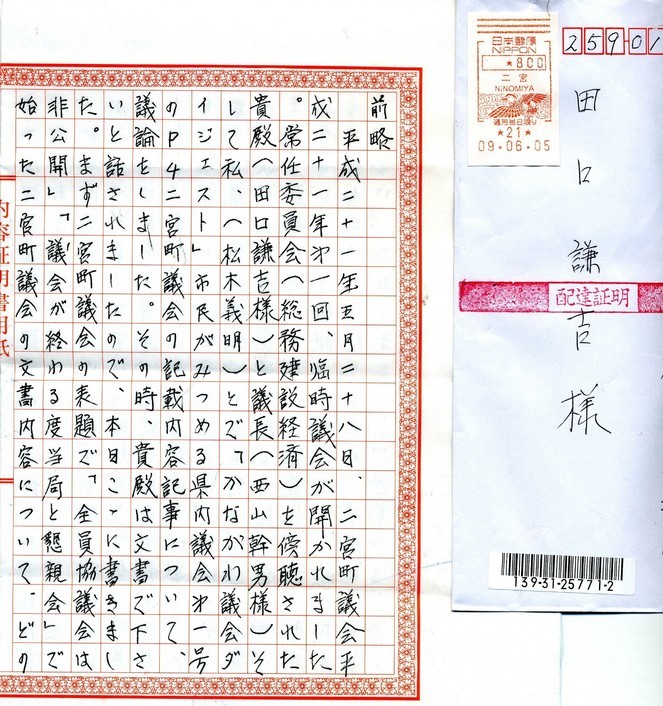 前略
平成二十一年五月二十八日、二宮町議会平
成二十一年第一回、臨時議会が開かれました
。常任委員会(総務建設経済)を傍聴された
貴殿(田口謙吉様)と議長(西山幹男様)そ
して私、(松木義明)とで「かながわ議会ダ
イジェスト」市民がみつめる県内議会第一号
のP4二宮町議会の記載内容記事について、
議論をしました。その時、貴殿は文書で下さ
いと話されましたので、本日こゝに書きまし
た。まず二宮町議会の表題で「全員協議会は
非公開」「議会が終わる度当局と懇親会」で
始った二宮町議会の文書内容について、どの
内容証明書用紙
日本郵便
NIPPON
*800
二宮
NINOMIYA
*21*
09.06.05
259-01
田口謙吉様
配達証明
139-31-25771-2